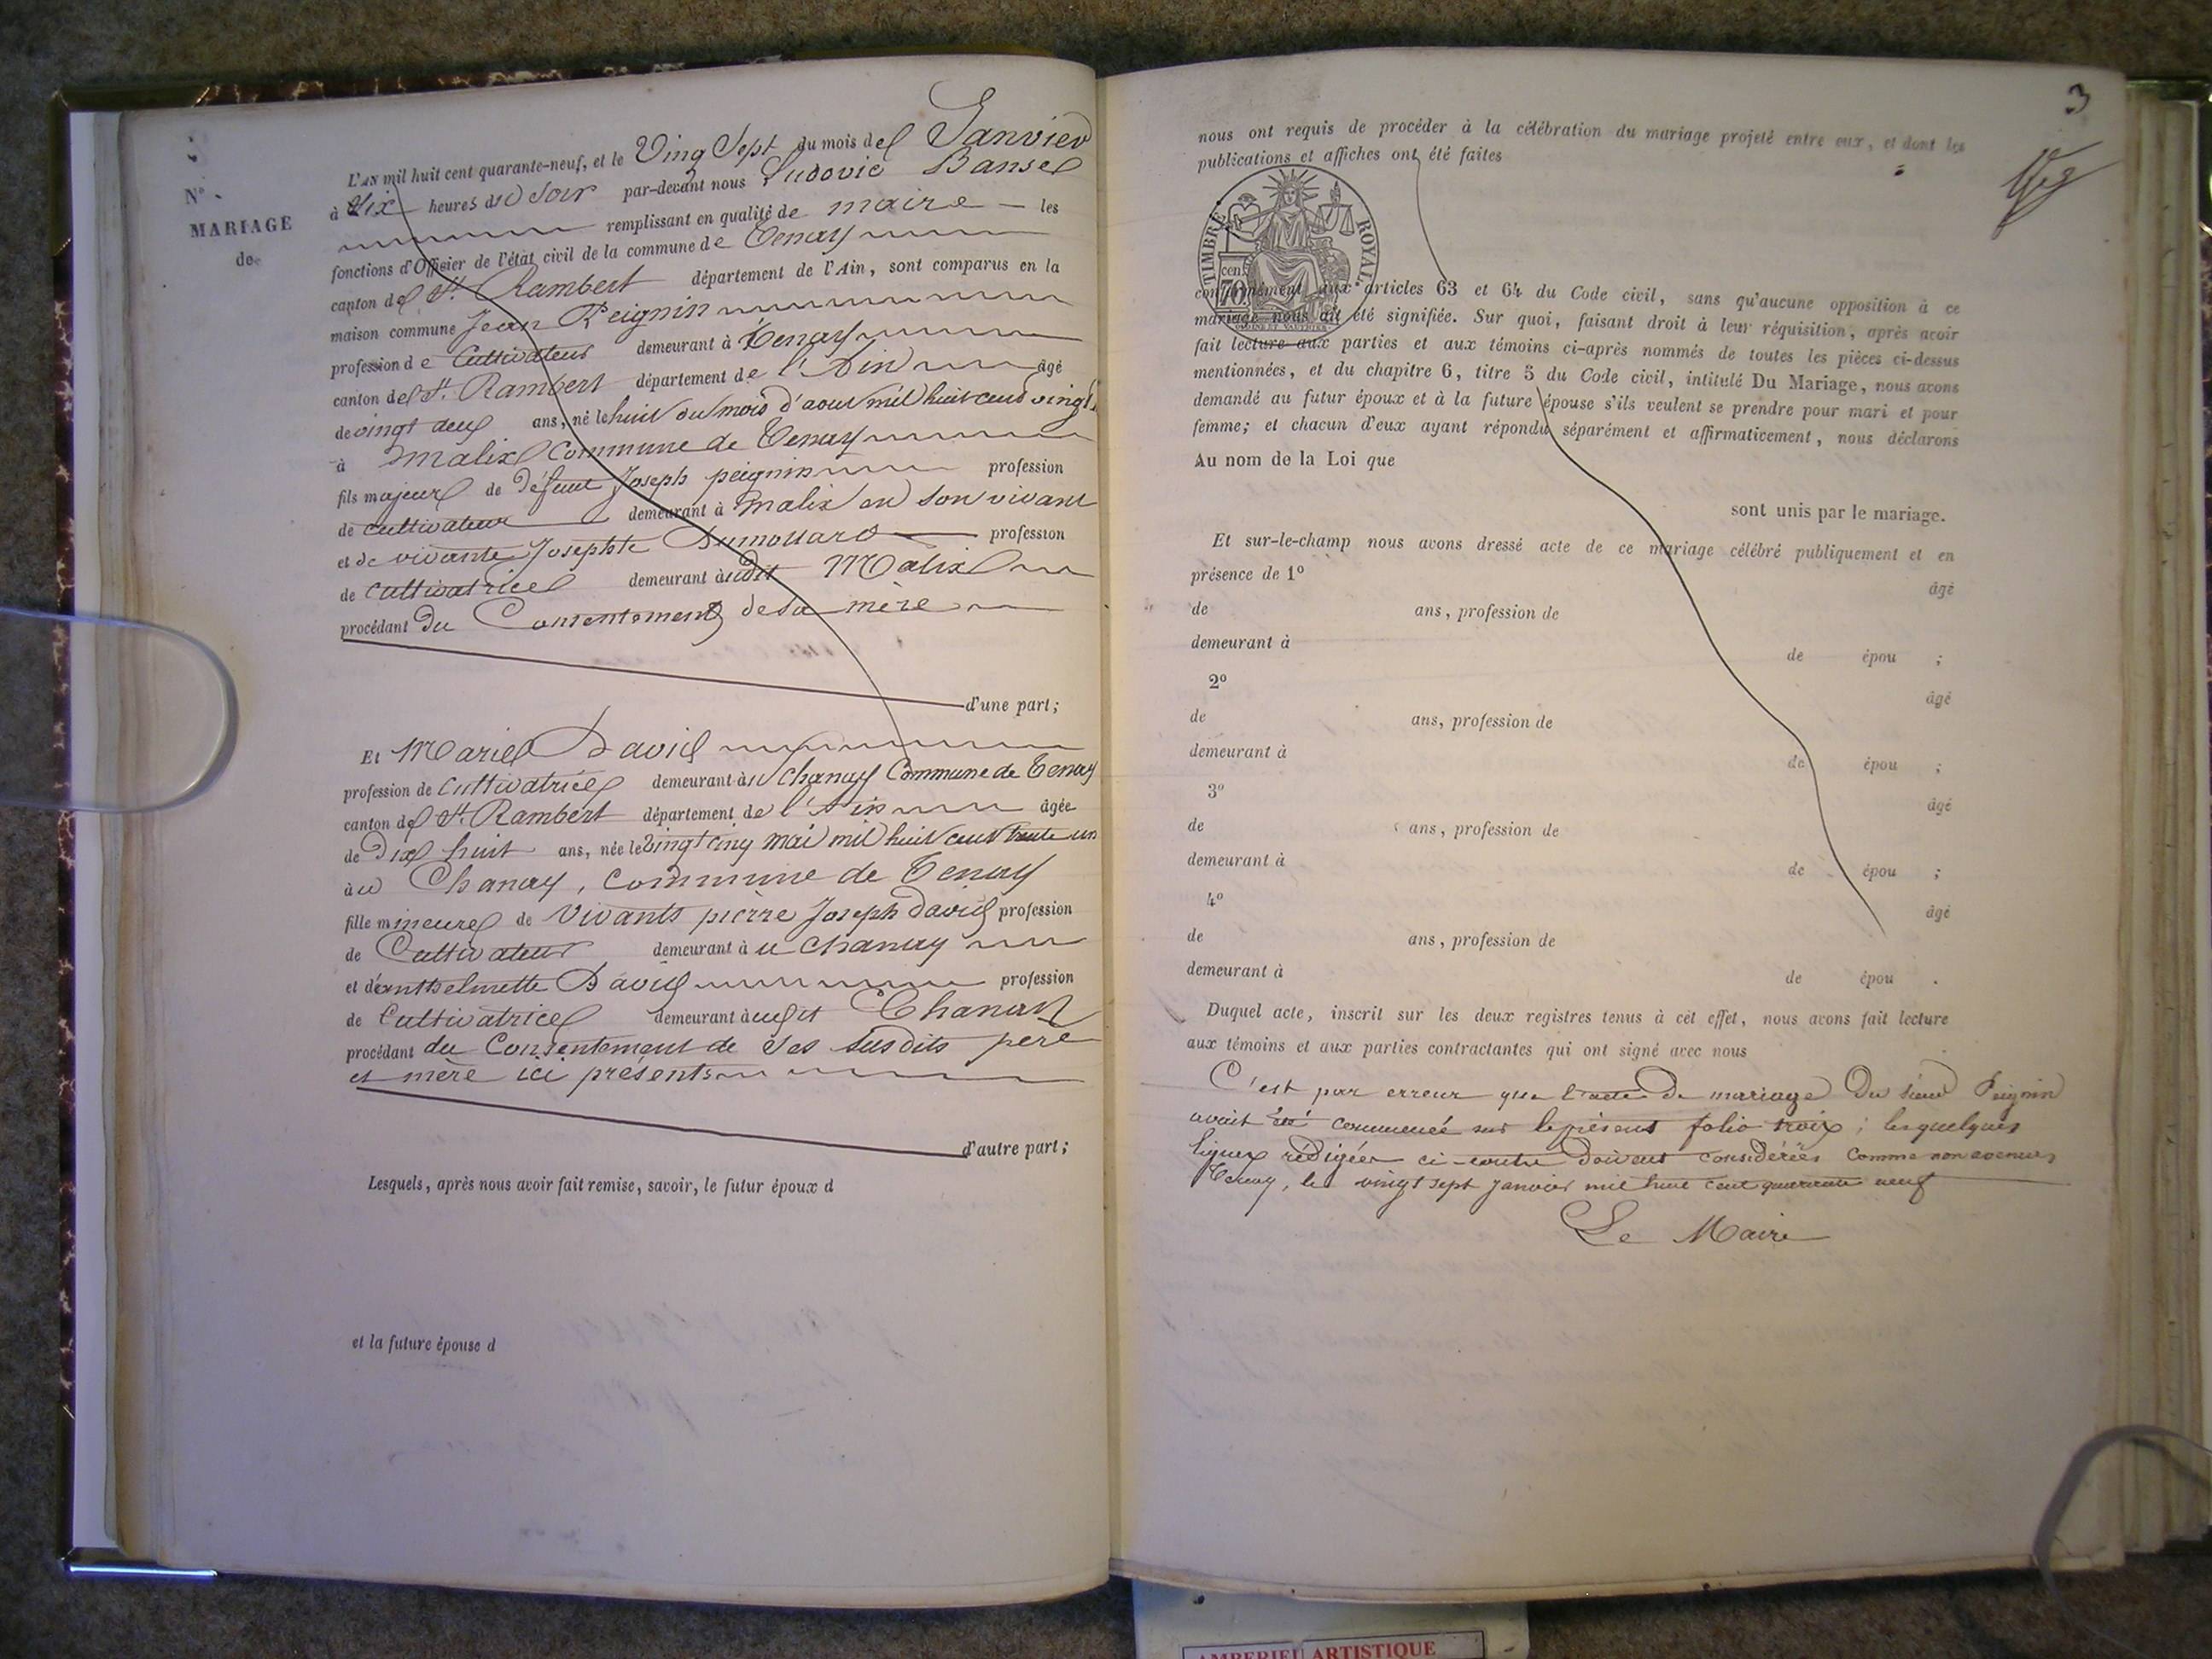 N°
MARIAGE
de
L'AN mil huit cent quarante-neuf, et le Ving Sept du mois de Janvier
à dix heures du Soir par-devant nous Ludovic Bansel
remplissant en qualité de maire les
fonctions d'Officier de l'état civil de la commune de Tenay
canton de St. Rambert département de l'Ain, sont comparus en la
maison commune Jean Peignin
profession de Cultivateur demeurant à Tenay
canton de St. Rambert département de l'Ain âgé
de vingt deux ans, né le huit du mois d'aout mil huit cent vingt
à malix Commune de Tenay
fils majeur de défunt Joseph peignin profession
de cultivateur demeurant à malix en son vivant
et de vivante Josephte Dumollard profession
de cultivatrice demeurant audit Malix
procédant du Consentement de sa mère
d'une part;
Et Marie David
profession de Cultivatrice demeurant au Chanay Commune de Tenay
canton de St. Rambert département de l'Ain âgée
de Dix huit ans, née le vingt cinq mai mil huit cent trente un
au Chanay, Commune de Tenay
fille mineure de Vivants pierre Joseph David profession
de Cultivateur demeurant à u Chanay
et d'anthelmette David profession
de Cultivatrice demeurant audit Chanay
procédant du Consentement de ses susdits pere
et mère ici présents
d'autre part;
Lesquels, après nous avoir fait remise, savoir, le futur époux d
et la future épouse d
3
nous ont requis de procéder à la célébration du mariage projeté entre eux, et dont les
publications et affiches ont été faites
TIMBRE ROYAL
cen. 70
conformément aux articles 63 et 64 du Code civil, sans qu'aucune opposition à ce
mariage nous ait été signifiée. Sur quoi, faisant droit à leur réquisition, après avoir
fait lecture aux parties et aux témoins ci-après nommés de toutes les pièces ci-dessus
mentionnées, et du chapitre 6, titre 5 du Code civil, intitulé Du Mariage, nous avons
demandé au futur époux et à la future épouse s'ils veulent se prendre pour mari et pour
femme; et chacun d'eux ayant répondu séparément et affirmativement, nous déclarons
Au nom de la Loi que
sont unis par le mariage.
Et sur-le-champ nous avons dressé acte de ce mariage célébré publiquement et en
présence de 1° âgé
de ans, profession de
demeurant à de épou ;
2° âgé
de ans, profession de
demeurant à de épou ;
3° âgé
de ans, profession de
demeurant à de épou ;
4° âgé
de ans, profession de
demeurant à de épou .
Duquel acte, inscrit sur les deux registres tenus à cet effet, nous avons fait lecture
aux témoins et aux parties contractantes qui ont signé avec nous
C'est par erreur que l'acte de mariage Du sieur Peignin
avait été commencé sur le présent folio trois; les quelques
lignes rédigées ci-contre doivent considérées comme non avenues
Tenay, le vingt sept Janvier mil huit cent quarante neuf
Le Maire
AMBERIEU ARTISTIQUE